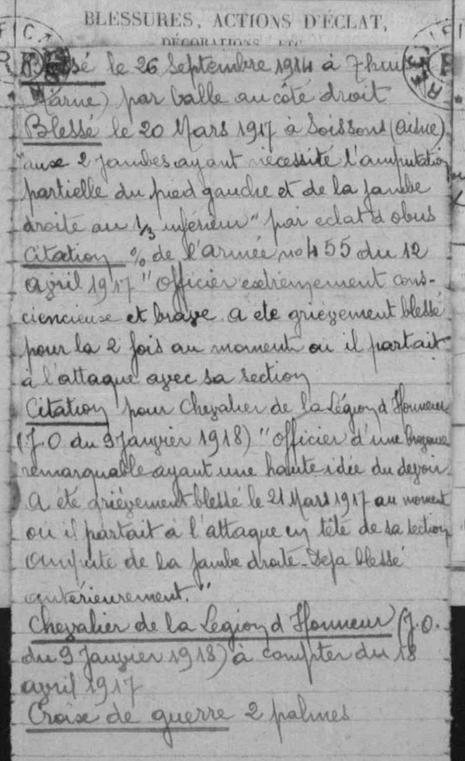 BLESSURES, ACTIONS D'ÉCLAT,
DÉCORATIONS, ETC.
Blessé le 26 Septembre 1914 à
(Marne) par balle au côté droit
Blessé le 20 Mars 1917 à Soissons (Aisne)
"aux 2 jambes ayant nécessité l'amputation
partielle du pied gauche et de la jambe
droite au 1/3 inférieur" par eclat d obus
Citation % de l'armée no 455 du 12
avril 1917 "Officier extremement cons-
ciencieux et brave. A ete grièvement blessé
pour la 2 fois au moment ou il partait
à l'attaque avec sa section
Citation pour Chevalier de la Légion d Honneur
(J.O. du 9 Janvier 1918) "Officier d'une bravoure
remarquable ayant une haute idée du devoir.
A été grièvement blessé le 21 Mars 1917 au moment
ou il partait à l'attaque en tête de sa section
Amputé de la jambe droite. Deja blessé
antérieurement."
Chevalier de la Légion d Honneur (J.O.
du 9 Janvier 1918) à compter du 18
avril 1917
Croix de guerre 2 palmes